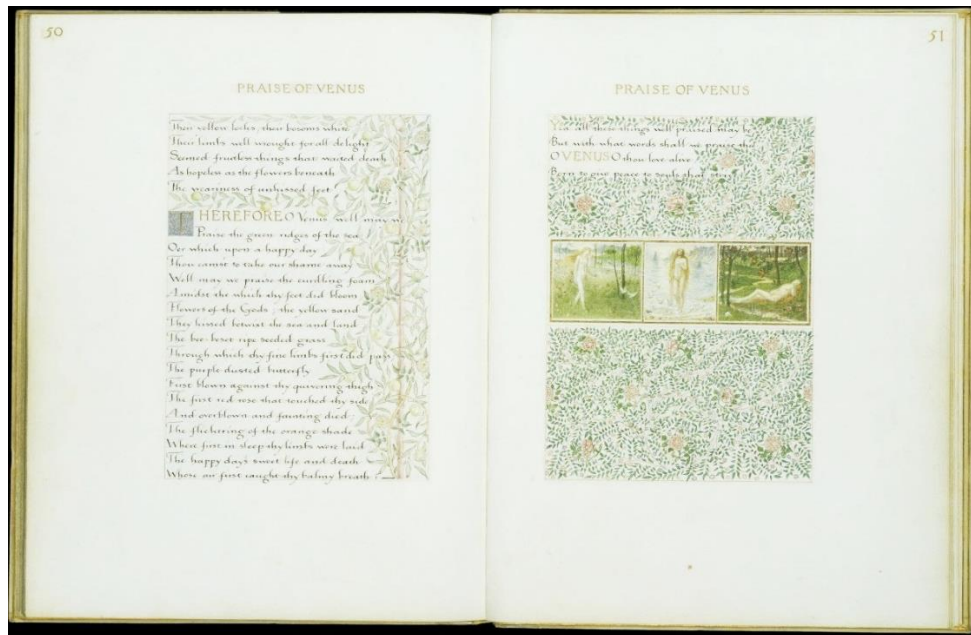 50
PRAISE OF VENUS
Their yellow locks, their bosoms white
Their limbs well wrought for all delight
Seemed fruitless things that waited death
As hopeless as the flowers beneath
The weariness of unkissed feet
THEREFORE O Venus well may we
Praise the green ridges of the sea
Oer which upon a happy day
Thou camst to take our shame away
Well may we praise the curdling foam
Amidst the which thy feet did bloom
Flowers of the Gods; the yellow sand
They kissed betwixt the sea and land
The bee-beset ripe seeded grass
Through which thy fine limbs first did pass
The purple dusted butterfly
First blown against thy quivering thigh
The first red rose that touched thy side
And overblown and fainting died
The flickering of the orange shade
Where first in sleep thy limbs were laid
The happy day's sweet life and death
Whose air first caught thy balmy breath
51
PRAISE OF VENUS
Yea all these things well praised may be
But with what words shall we praise thee
O VENUS O thou love alive
Born to give peace to souls that strive